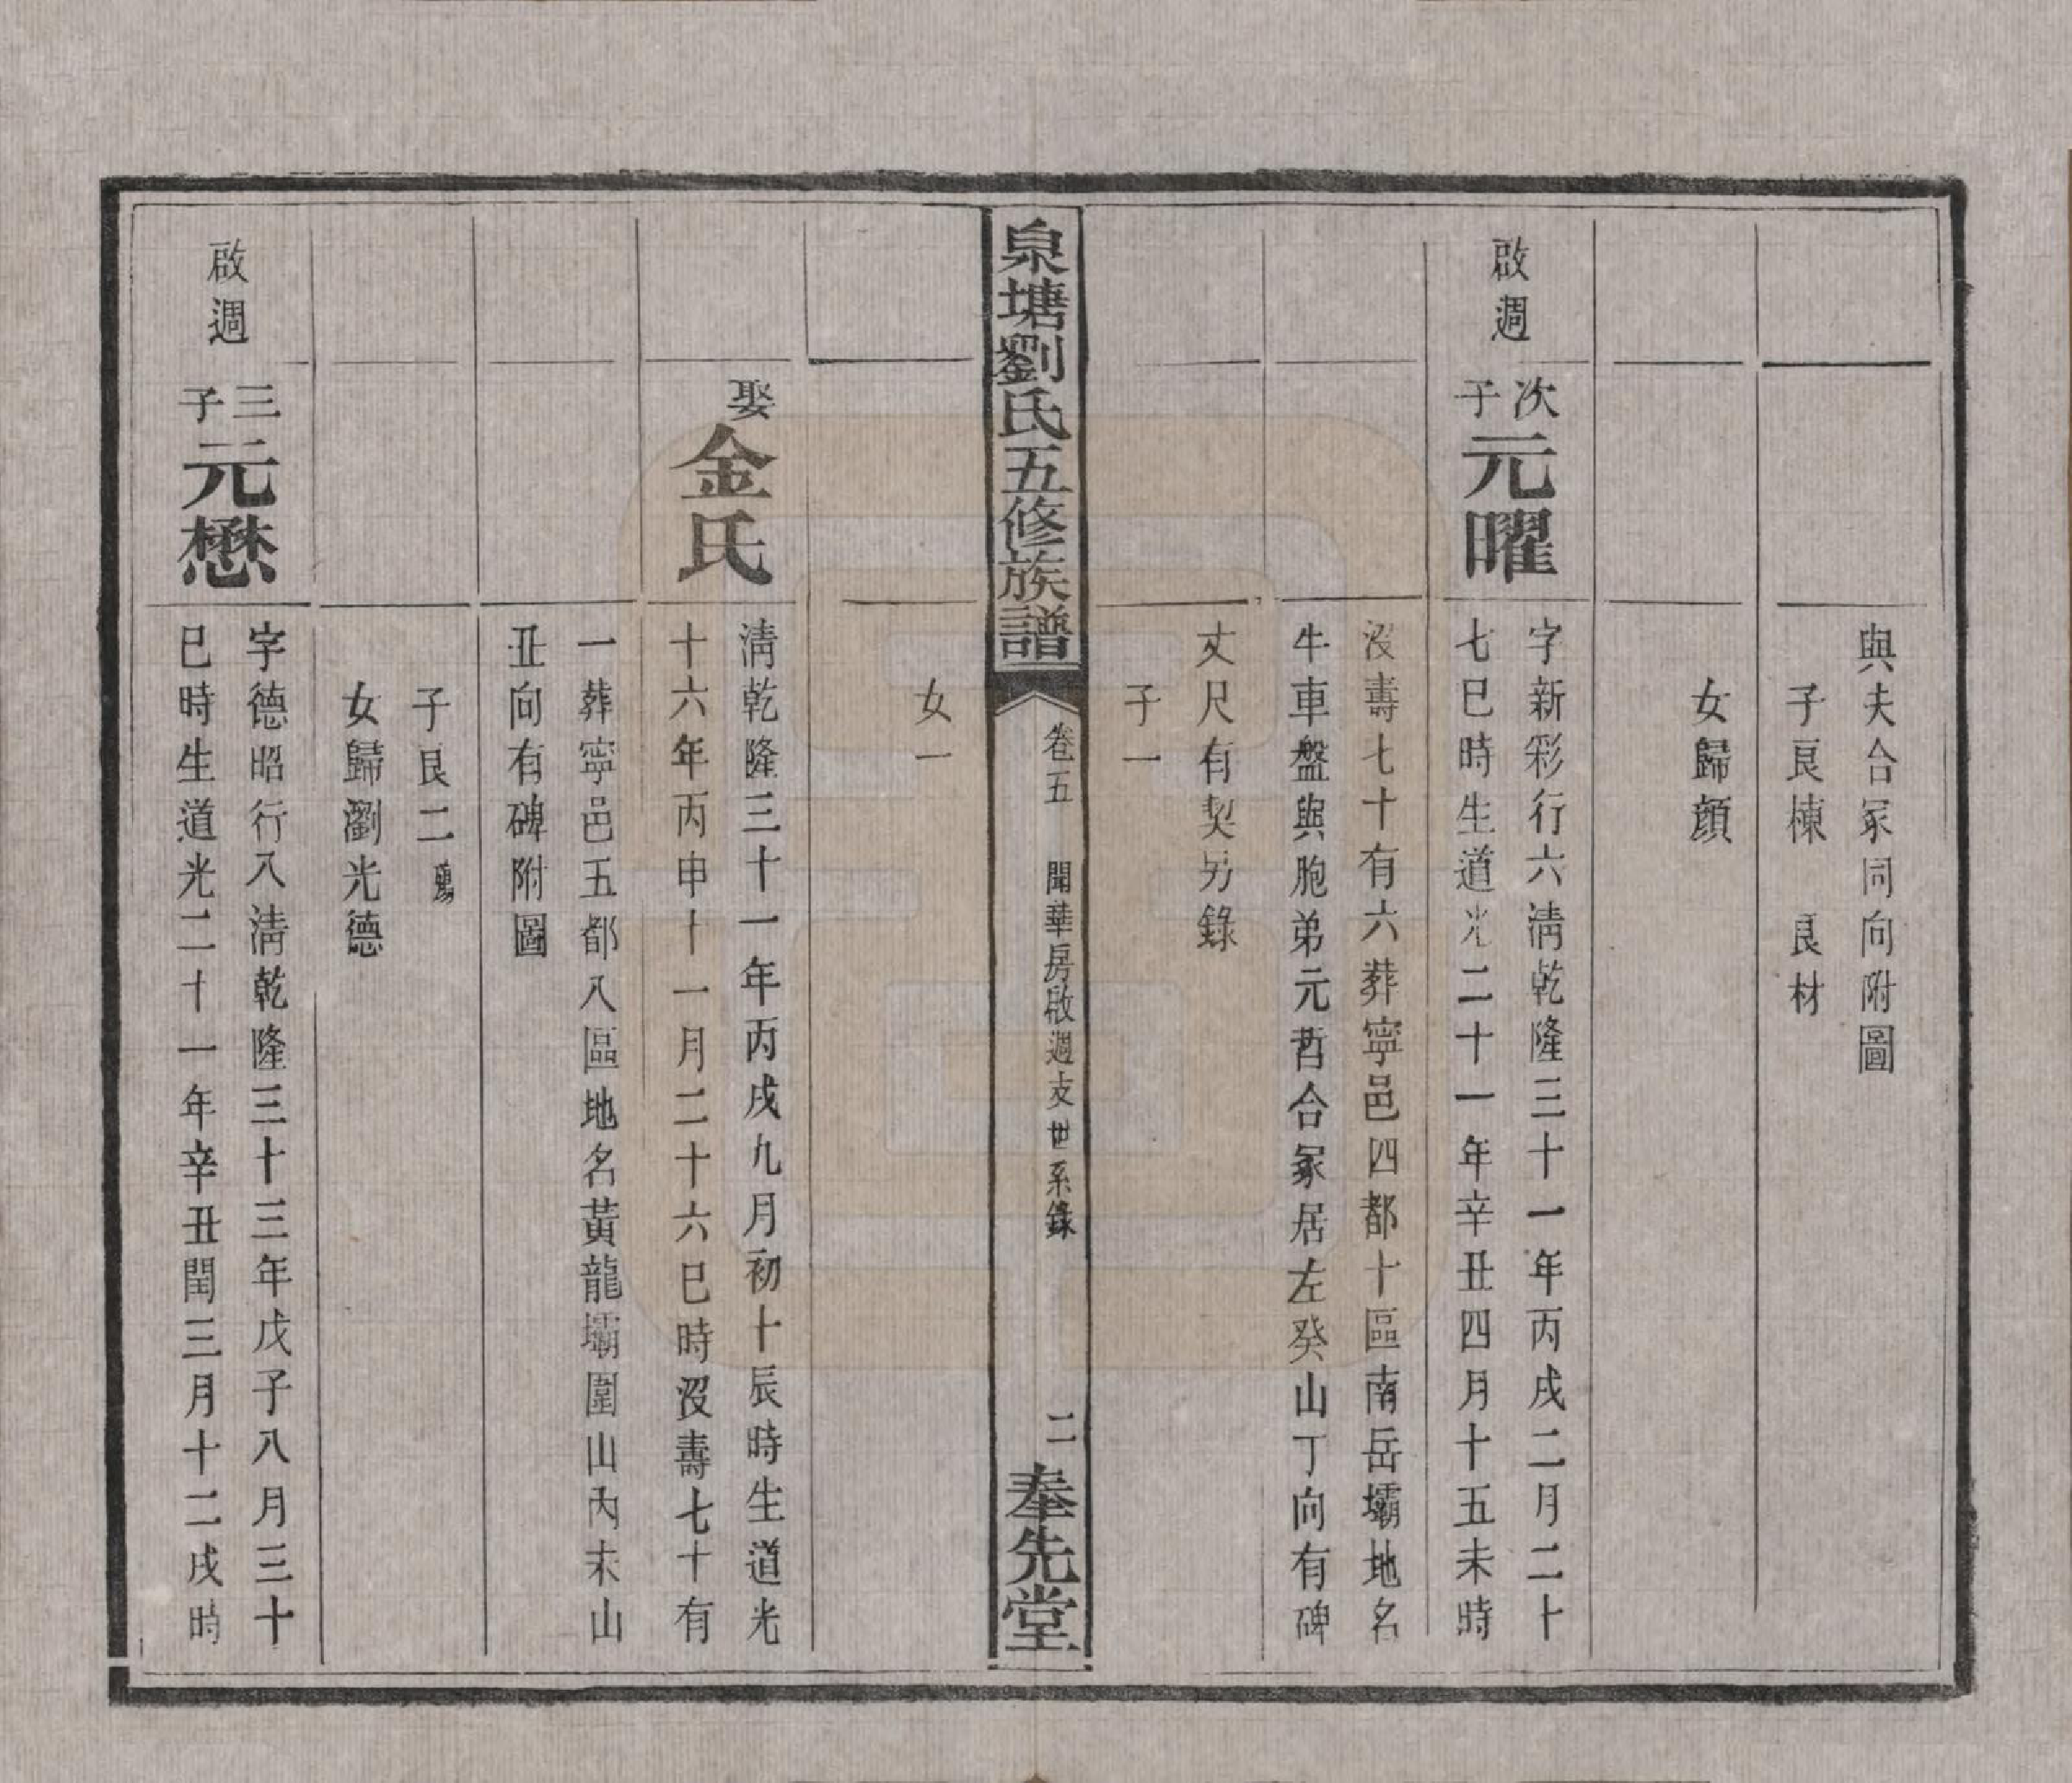 與夫合冢同向附圖
子良棟　良材
女歸顏
啟週
次子元曜
字新彩行六淸乾隆三十一年丙戌二月二十
七巳時生道光二十一年辛丑四月十五未時
沒壽七十有六葬寧邑四都十區南岳壩地名
牛車盤與胞弟元哲合冢居左癸山丁向有碑
丈尺有契另錄
子一
泉塘劉氏五修族譜
卷五　聞華房啟週支世系錄
二
奉先堂
女一
娶金氏
淸乾隆三十一年丙戌九月初十辰時生道光
十六年丙申十一月二十六巳時沒壽七十有
一葬寧邑五都八區地名黃龍壩圍山內未山
丑向有碑附圖
子良二
女歸瀏光德
啟週
三子元懋
字德昭行八淸乾隆三十三年戊子八月三十
巳時生道光二十一年辛丑閏三月十二戌時